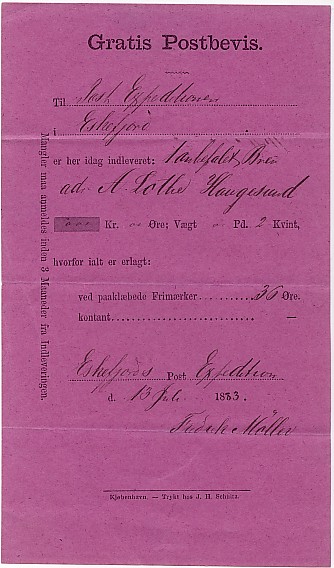 Gratis Postbevis.
Til Post Expeditionen
i Eskefjord
er her idag indleveret: Anbefalet Brev
adr A. Lothe Haugesund
Kr. Øre; Vægt Pd. 2 Kvint,
hvorfor ialt er erlagt:
ved paaklæbede Frimærker 36 Øre.
kontant —
Eskefjords Post Expedition
d. 13 Juli 1883.
Fredrik Möller
Kjøbenhavn. — Trykt hos J. H. Schultz.
Mangler maa anmeldes inden 3 Maaneder fra Indleveringen.